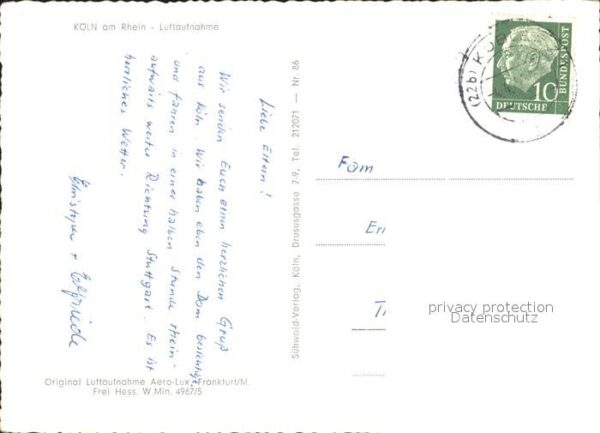 KÖLN am Rhein - Luftaufnahme
Liebe Eltern!
Wir senden Euch einen herzlichen Gruß
aus Köln. Wir haben eben den Dom besichtigt
und fahren in einer halben Stunde rhein-
aufwärts weiter Richtung Stuttgart. Es ist
herrliches Wetter.
+ Elfriede
Original Luftaufnahme Aero-Lux, Frankfurt/M.
Frei Hess. W. Min. 4967/5
Suhwold-Verlag, Köln, Drususgasse 7-9, Tel. 212071 — Nr. 86
(22b) 
10
DEUTSCHE
BUNDESPOST
Fam
privacy protection
Datenschutz